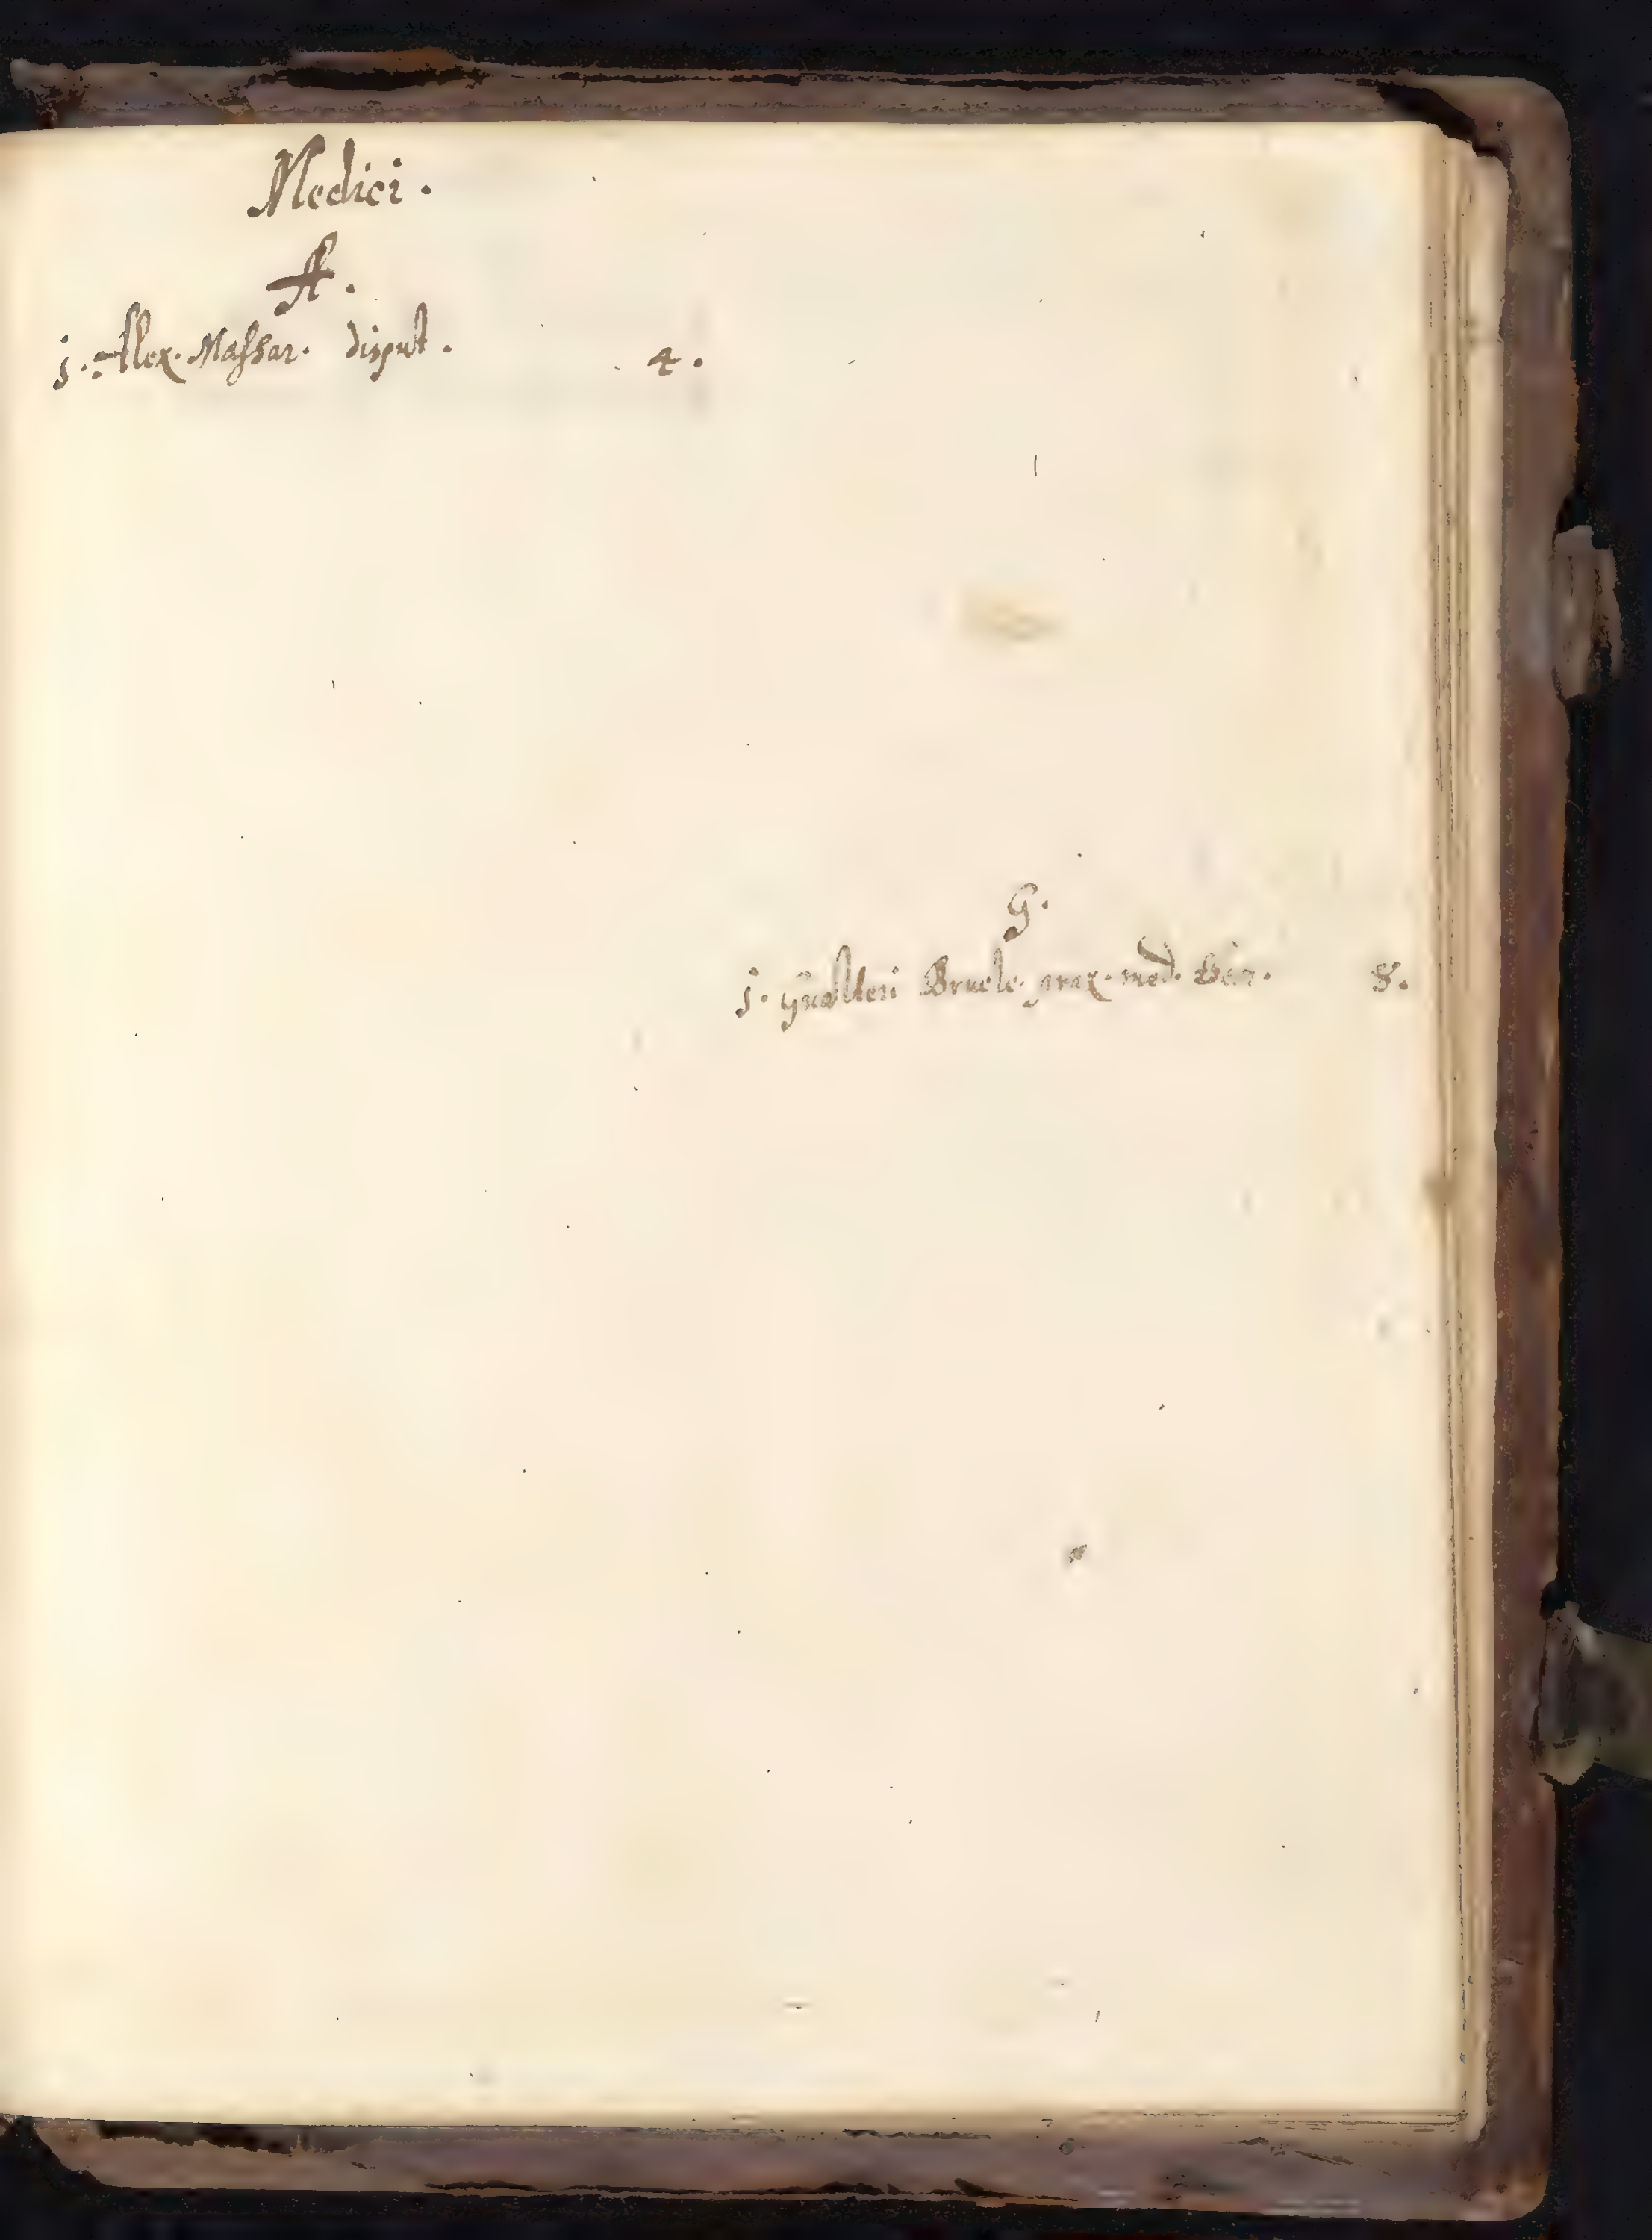 Medici.
A.
j. Alex. Massar. disput. 4.
G.
j. Gualteri Bruele. prax. med. 8.